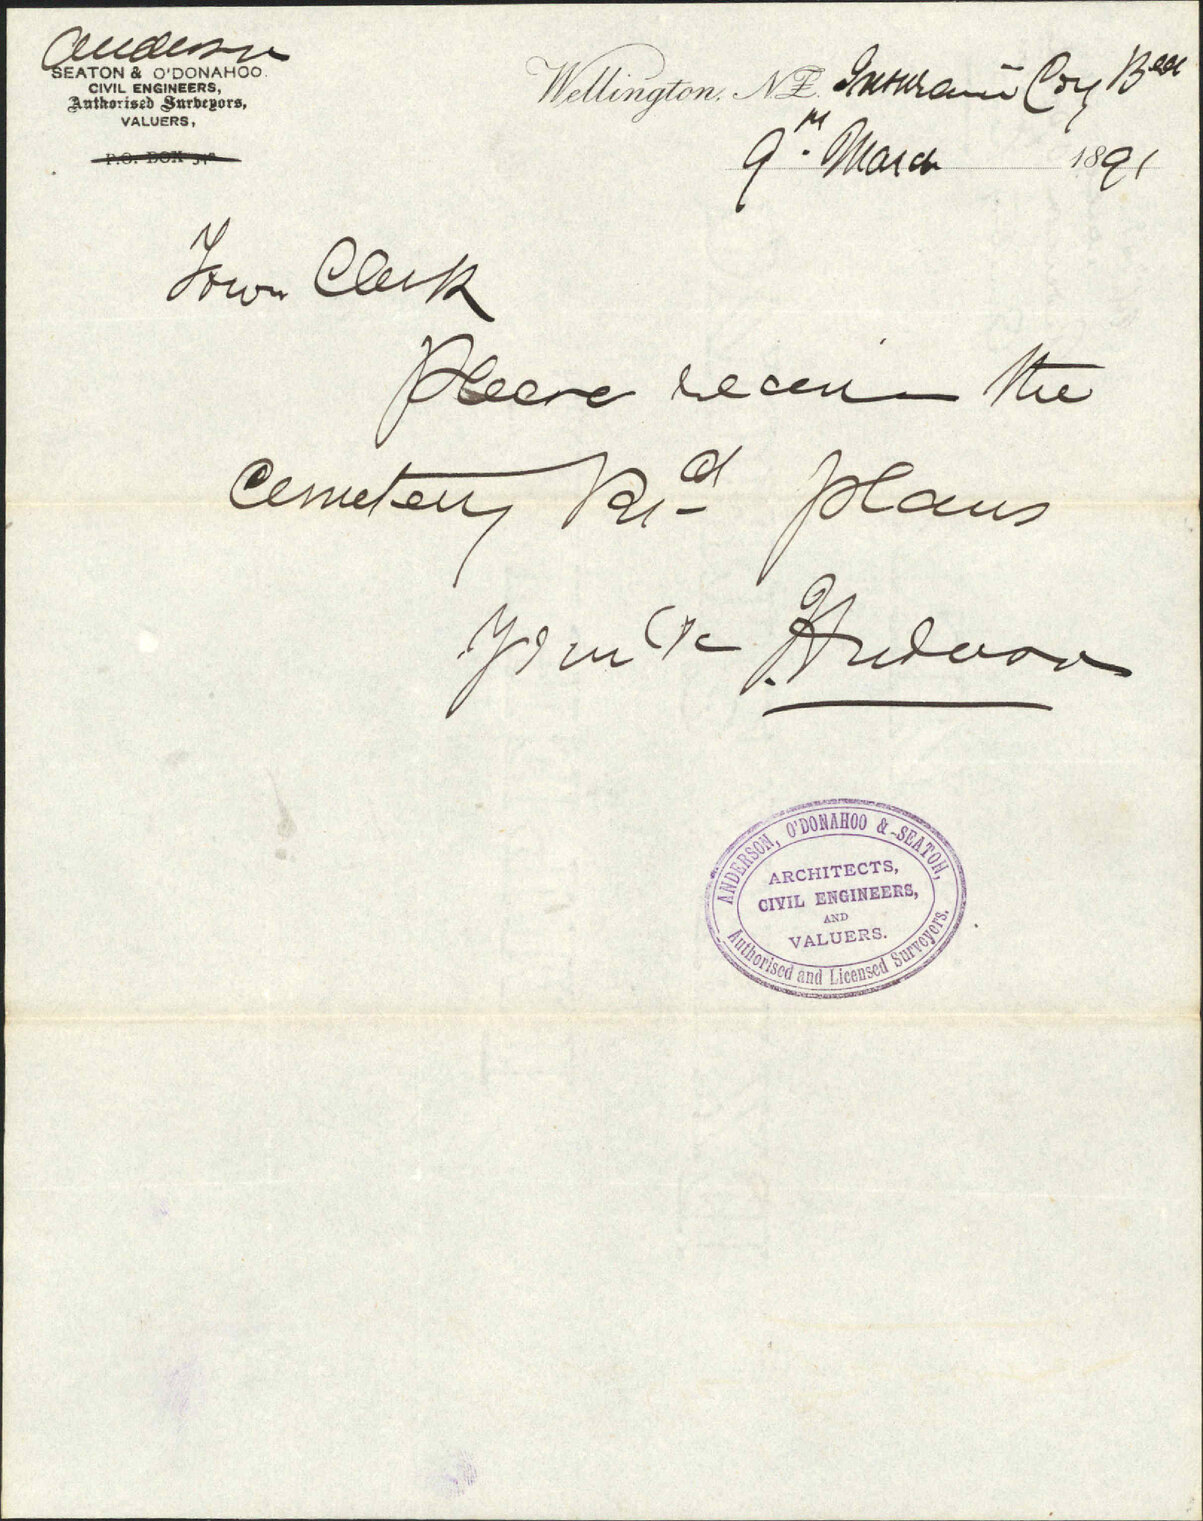 Anderson
SEATON & O'DONAHOO.
CIVIL ENGINEERS,
Authorised Surveyors,
VALUERS,
P.O. BOX
Wellington, N.Z. Insurance Coy
9th March 1891
Town Clerk
Please receive the
Cemetery Rd plans
Yours &c
ANDERSON, O'DONAHOO & SEATON,
ARCHITECTS,
CIVIL ENGINEERS,
AND
VALUERS.
Authorised and Licensed Surveyors.